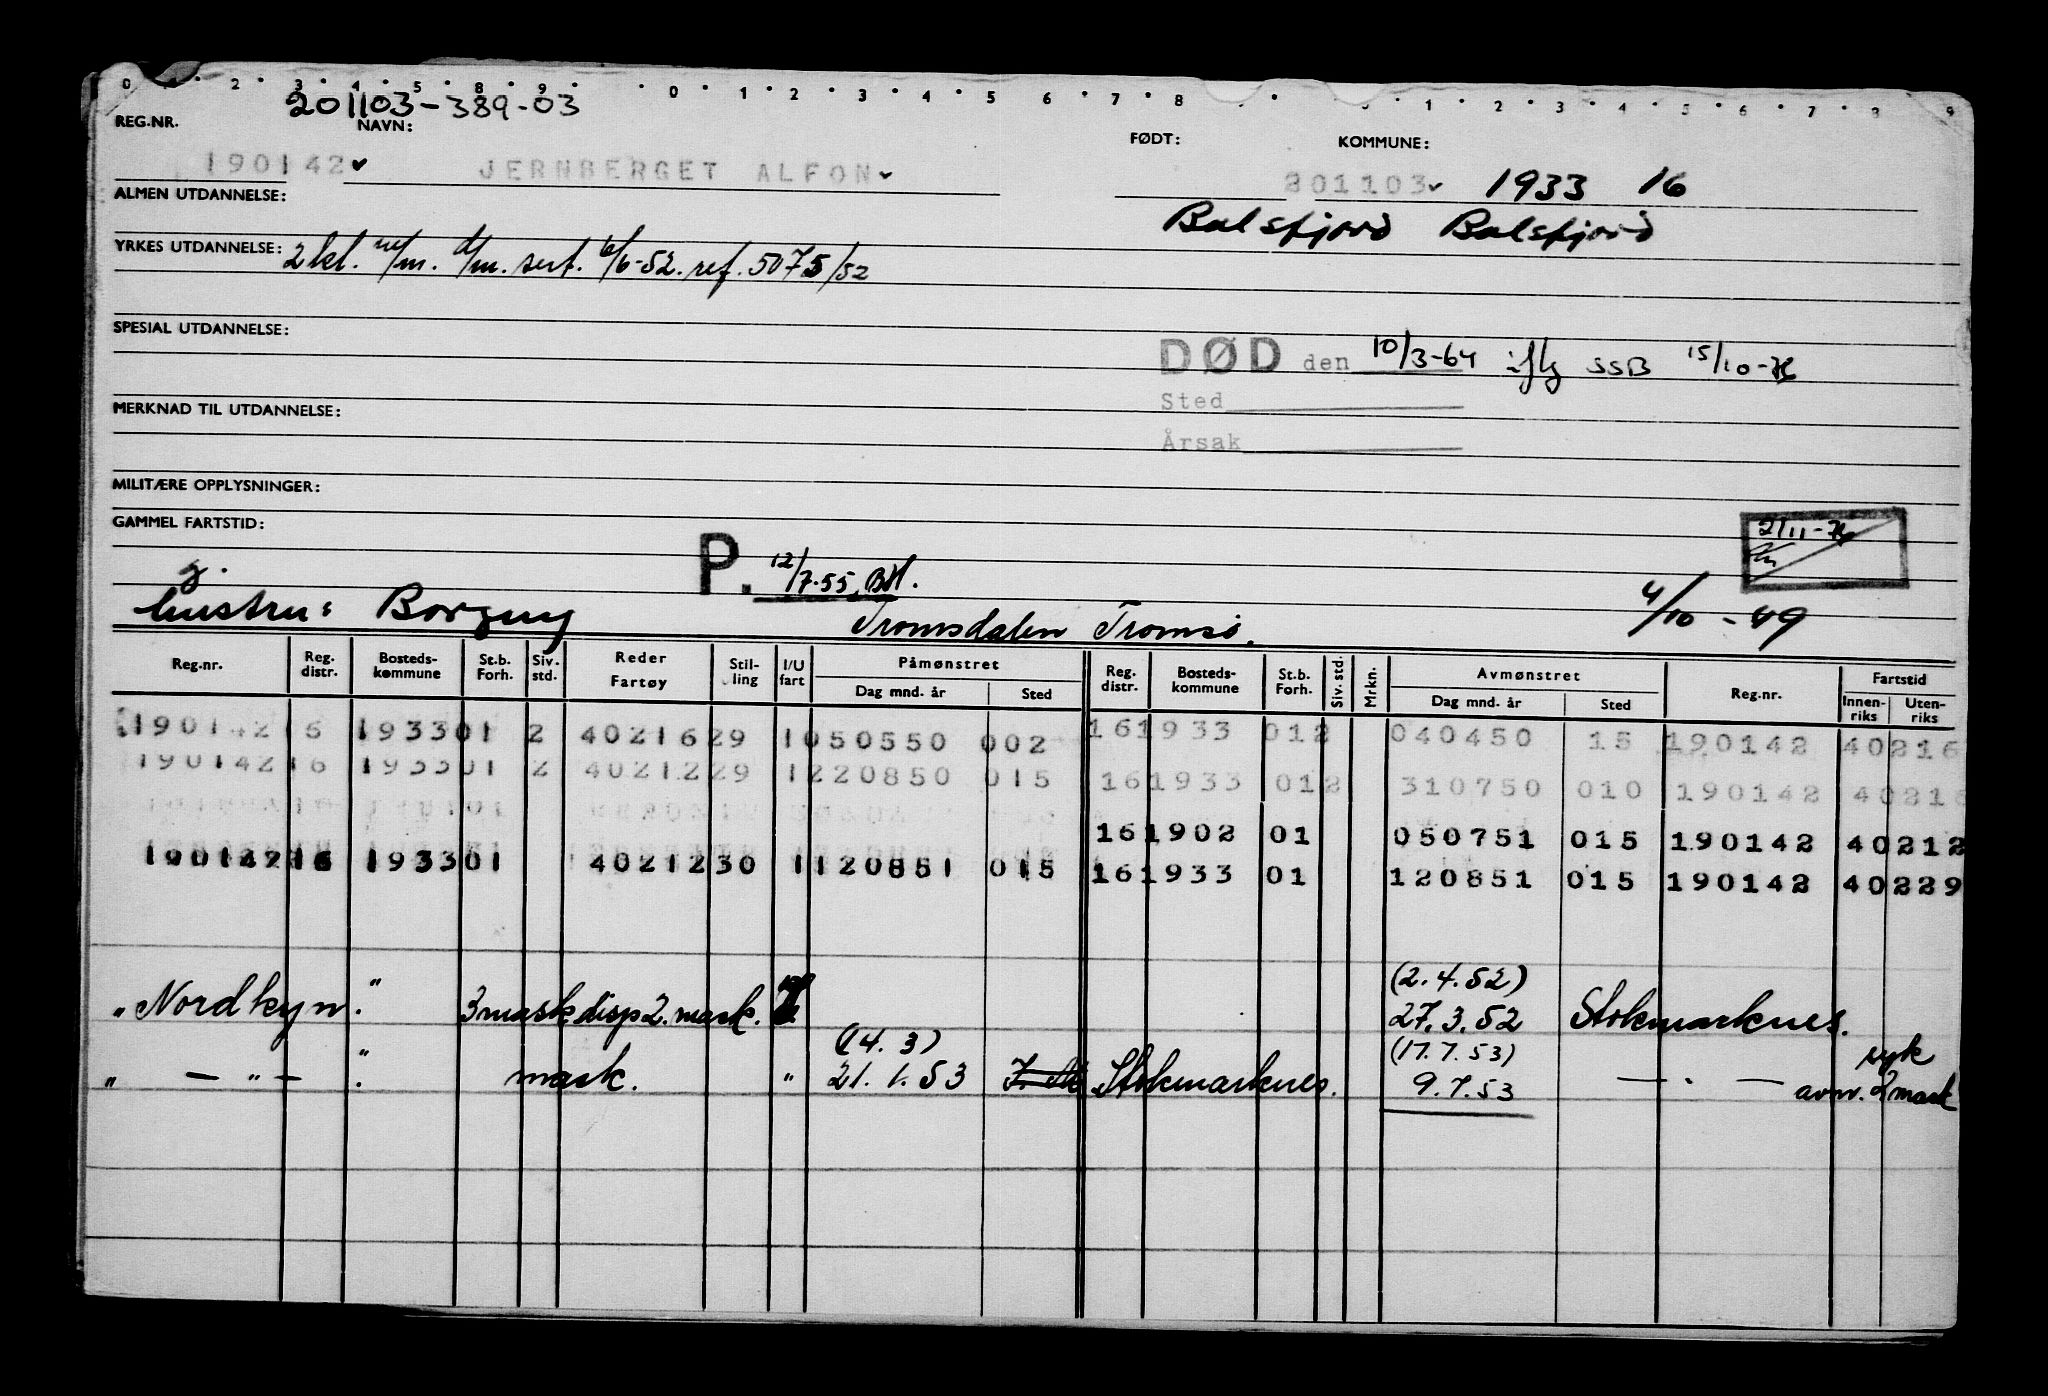 0 2 3 4 5 8 9 0 1 2 3 4 5 6 7 8 1 2 3 4 5 6 7 8 9
201103-389-03
REG.NR. NAVN: FØDT: KOMMUNE:
190142 JERNBERGET ALFON 201103 1933 16
ALMEN UTDANNELSE: Balsfjord Balsfjord
YRKES UTDANNELSE: 2 kl. m/m. d/m. sert. 6/6-52. ref. 5075/52
SPESIAL UTDANNELSE:
DØD den 10/3-64 iflg SSB 15/10-76
Sted
MERKNAD TIL UTDANNELSE:
Årsak
MILITÆRE OPPLYSNINGER:
GAMMEL FARTSTID: 2/11-76
P. 12/7-55. BH.
g.
hustru: Borgny Tromsdalen Tromsø. 4/10-49
Reg.nr. Reg. distr. Bosteds-kommune St.b. Forh. Siv. std. Reder Fartøy Stil-ling I/U fart Påmønstret Dag mnd. år Sted Reg. distr. Bosteds-kommune St.b. Forh. Siv. std. Mrkn. Avmønstret Dag mnd. år Sted Reg.nr. Fartstid Innen-riks Uten-riks
190142 16 1933 01 2 40216 29 1 050550 002 16 1933 01 2 040450 15 190142 40216
190142 16 1933 01 2 40212 29 1 220850 015 16 1933 01 2 310750 010 190142 40216
16 1902 01 050751 015 190142 40212
190142 16 1933 01 40212 30 1 120851 015 16 1933 01 120851 015 190142 40229
(2.4.52)
" Nordkyn. " 3 mask disp 2. mask. 27.3.52 Stokmarknes.
(14.3) (17.7.53) syk
" — " — . " mask. " 21.1.53 Stokmarknes. 9.7.53 — . — avm. 2 mask